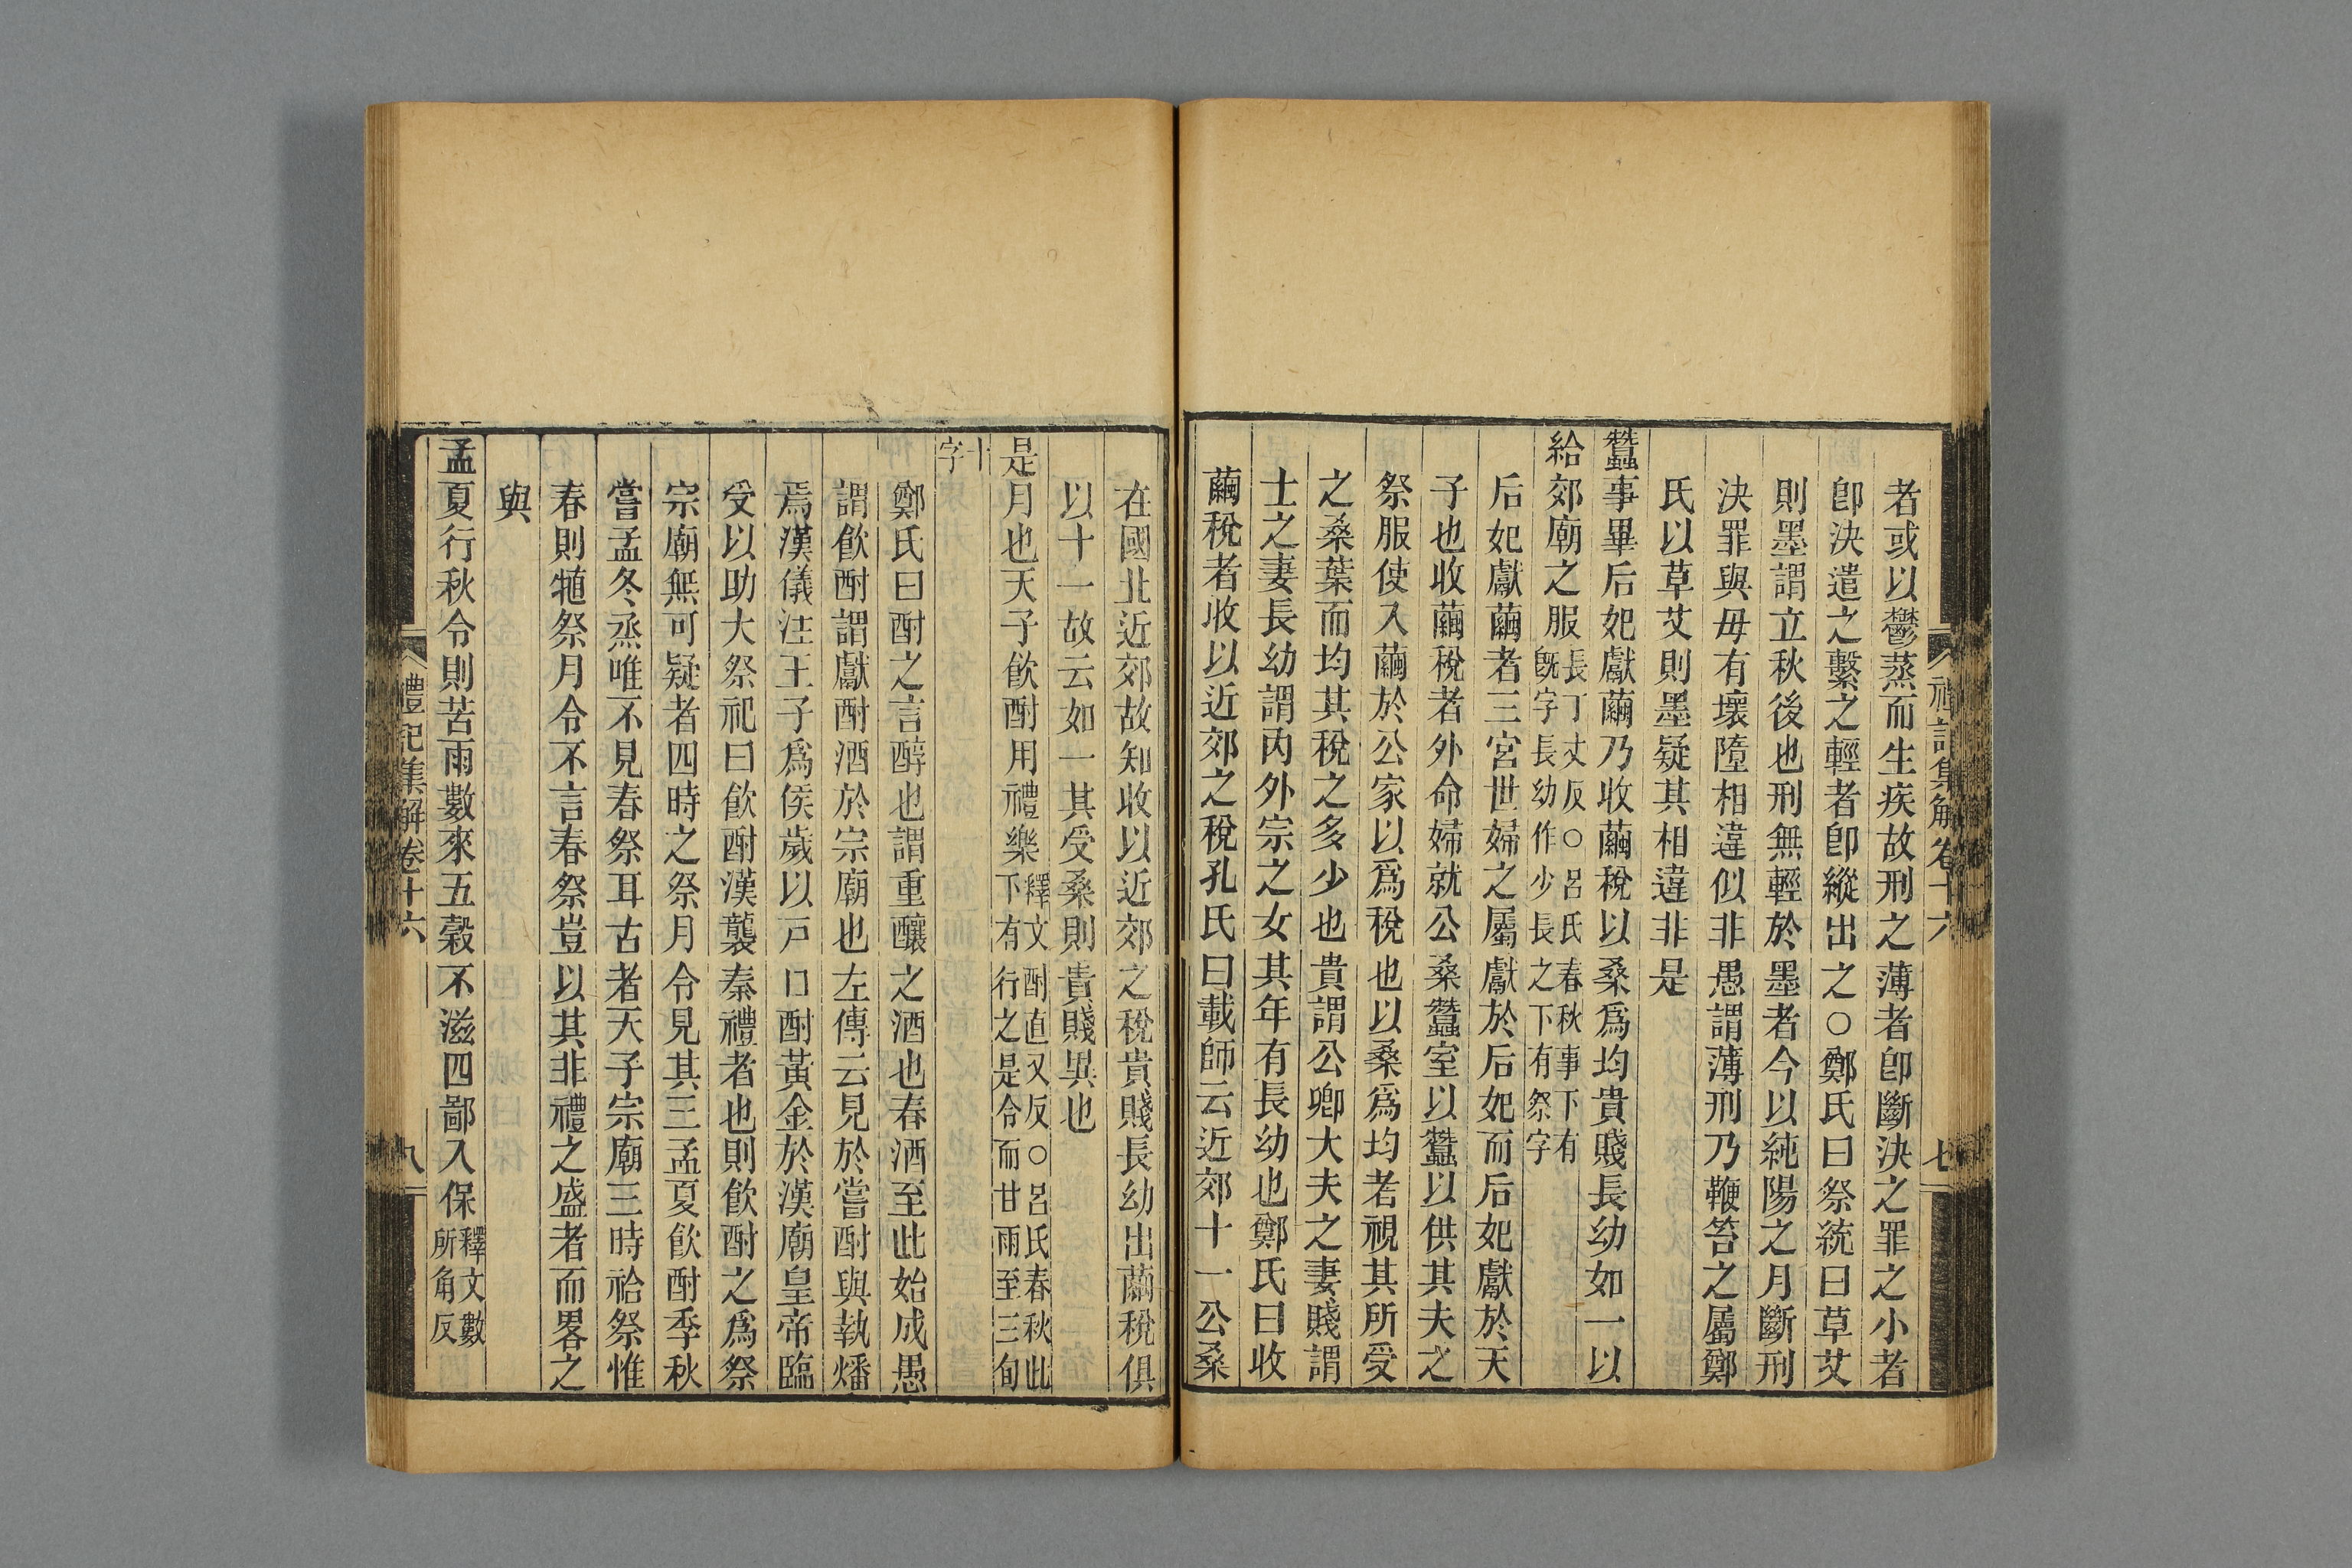 禮記集解卷十六
七
者或以鬱蒸而生疾故刑之薄者卽斷決之罪之小者
卽決遣之繫之輕者卽縱出之○鄭氏曰祭統曰草艾
則墨謂立秋後也刑無輕於墨者今以純陽之月斷刑
決罪與毋有壞墮相違似非愚謂薄刑乃鞭笞之屬鄭
氏以草艾則墨疑其相違非是
蠶事畢后妃獻繭乃收繭稅以桑爲均貴賤長幼如一以
給郊廟之服長丁丈反○呂氏春秋事下有旣字長幼作少長之下有祭字
后妃獻繭者三宮世婦之屬獻於后妃而后妃獻於天
子也收繭稅者外命婦就公桑蠶室以蠶以供其夫之
祭服使入繭於公家以爲稅也以桑爲均者視其所受
之桑葉而均其稅之多少也貴謂公卿大夫之妻賤謂
士之妻長幼謂內外宗之女其年有長幼也鄭氏曰收
繭稅者收以近郊之稅孔氏曰載師云近郊十一公桑
在國北近郊故知收以近郊之稅貴賤長幼出繭稅俱
以十一故云如一其受桑則貴賤異也
是月也天子飮酎用禮樂釋文酎直又反○呂氏春秋此下有行之是令而甘雨至三旬
十字
鄭氏曰酎之言醇也謂重釀之酒也春酒至此始成愚
謂飮酎謂獻酎酒於宗廟也左傳云見於嘗酎與執燔
焉漢儀注王子爲侯歲以戸口酎黃金於漢廟皇帝臨
受以助大祭祀曰飮酎漢襲秦禮者也則飮酎之爲祭
宗廟無可疑者四時之祭月令見其三孟夏飮酎季秋
嘗孟冬烝唯不見春祭耳古者天子宗廟三時祫祭惟
春則犆祭月令不言春祭豈以其非禮之盛者而畧之
與
孟夏行秋令則苦雨數來五穀不滋四鄙入保釋文數所角反
禮記集解卷十六
八